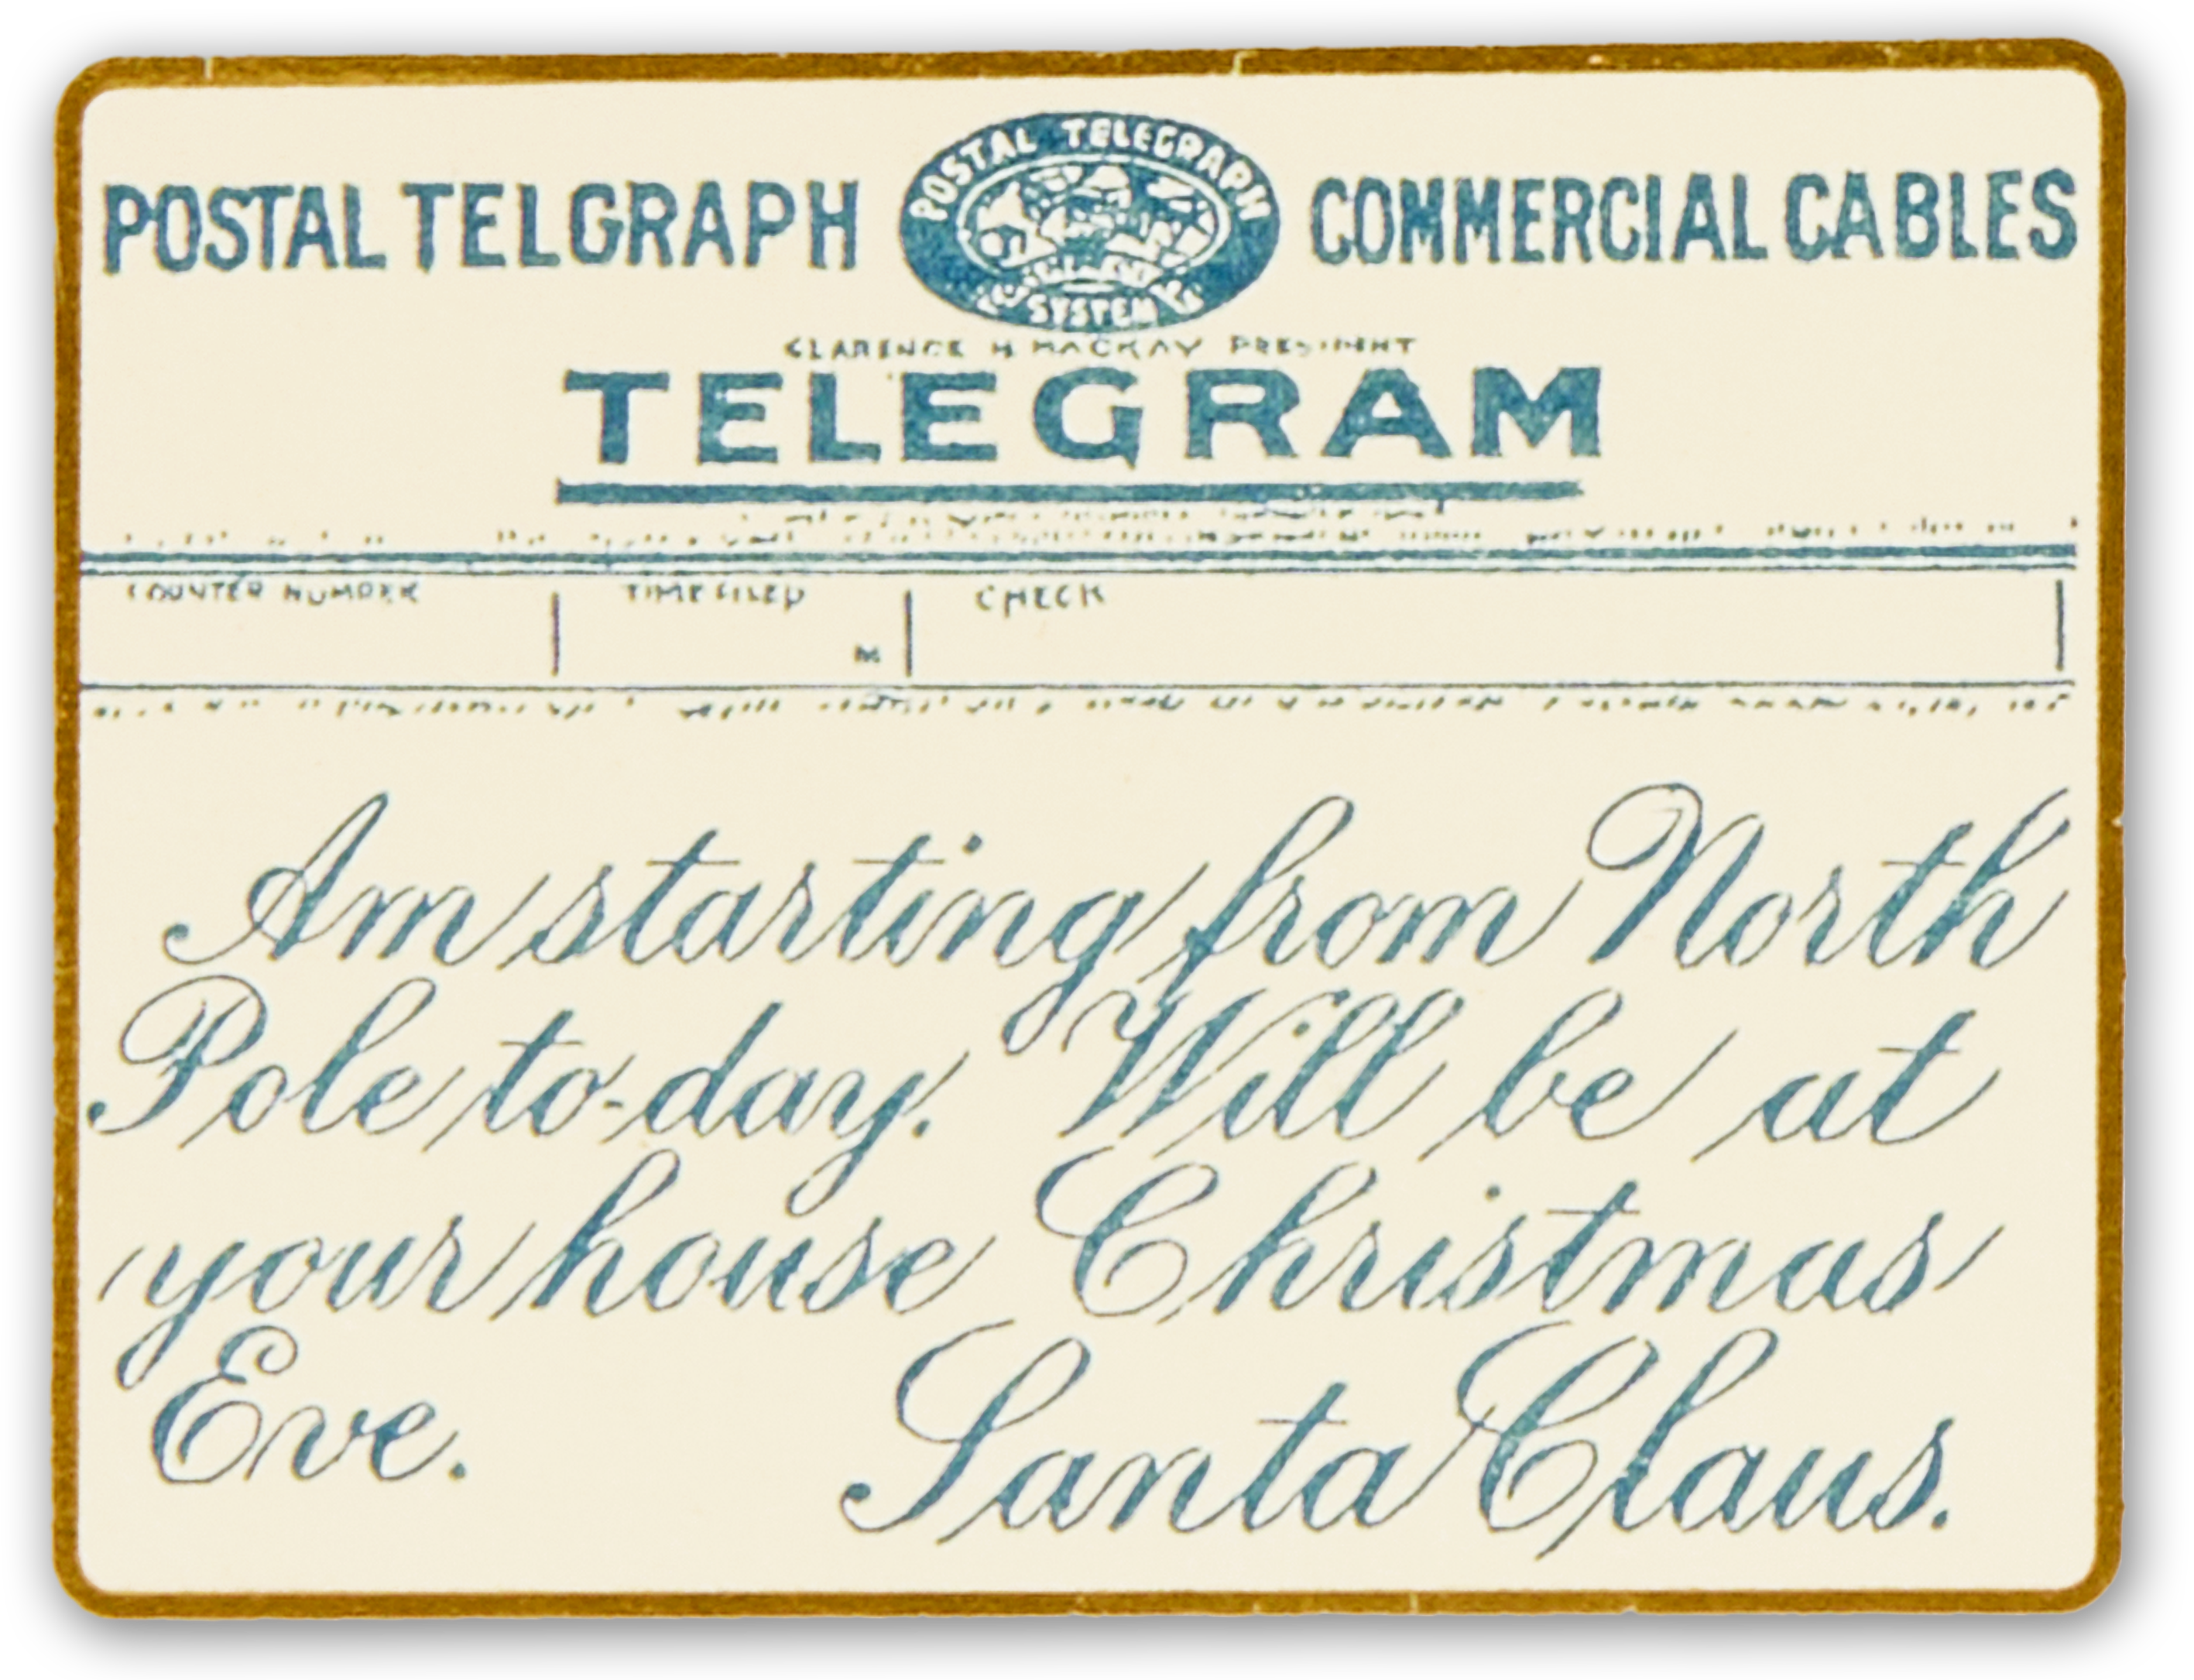 POSTAL TELEGRAPH
SYSTEM
POSTAL TELGRAPH COMMERCIAL CABLES
CLARENCE H MACKAY PRESIDENT
TELEGRAM
COUNTER NUMBER TIME FILED CHECK
M
Am starting from North
Pole to-day. Will be at
your house Christmas
Eve. Santa Claus.